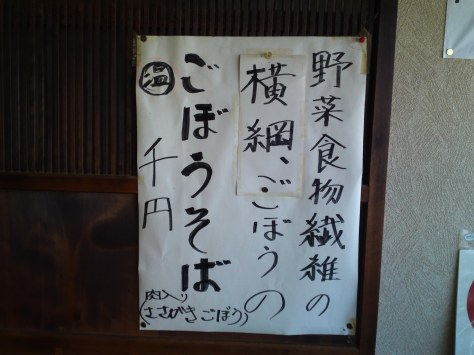 野菜食物繊雑の
横綱、ごぼうの
ごぼうそば
温
千円
(肉入り
ささがきごぼう)